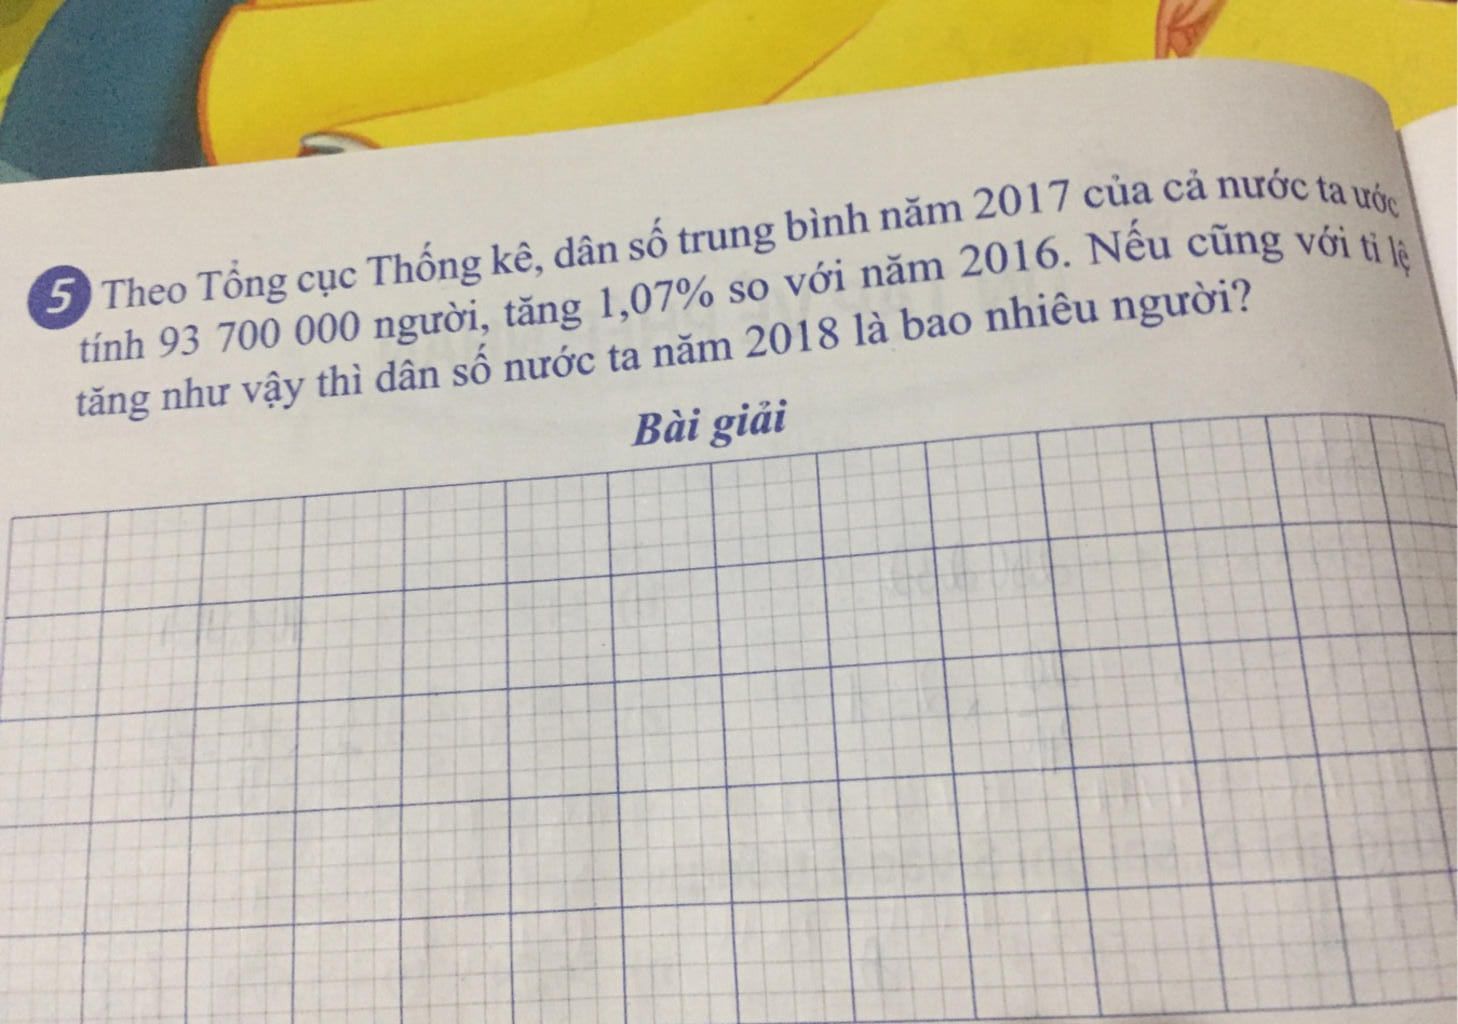 5 Theo Tổng cục Thống kê, dân số trung bình năm 2017 của cả nước ta ước
tính 93 700 000 người, tăng 1,07% so với năm 2016. Nếu cũng với tỉ lệ
tăng như vậy thì dân số nước ta năm 2018 là bao nhiêu người?
Bài giải